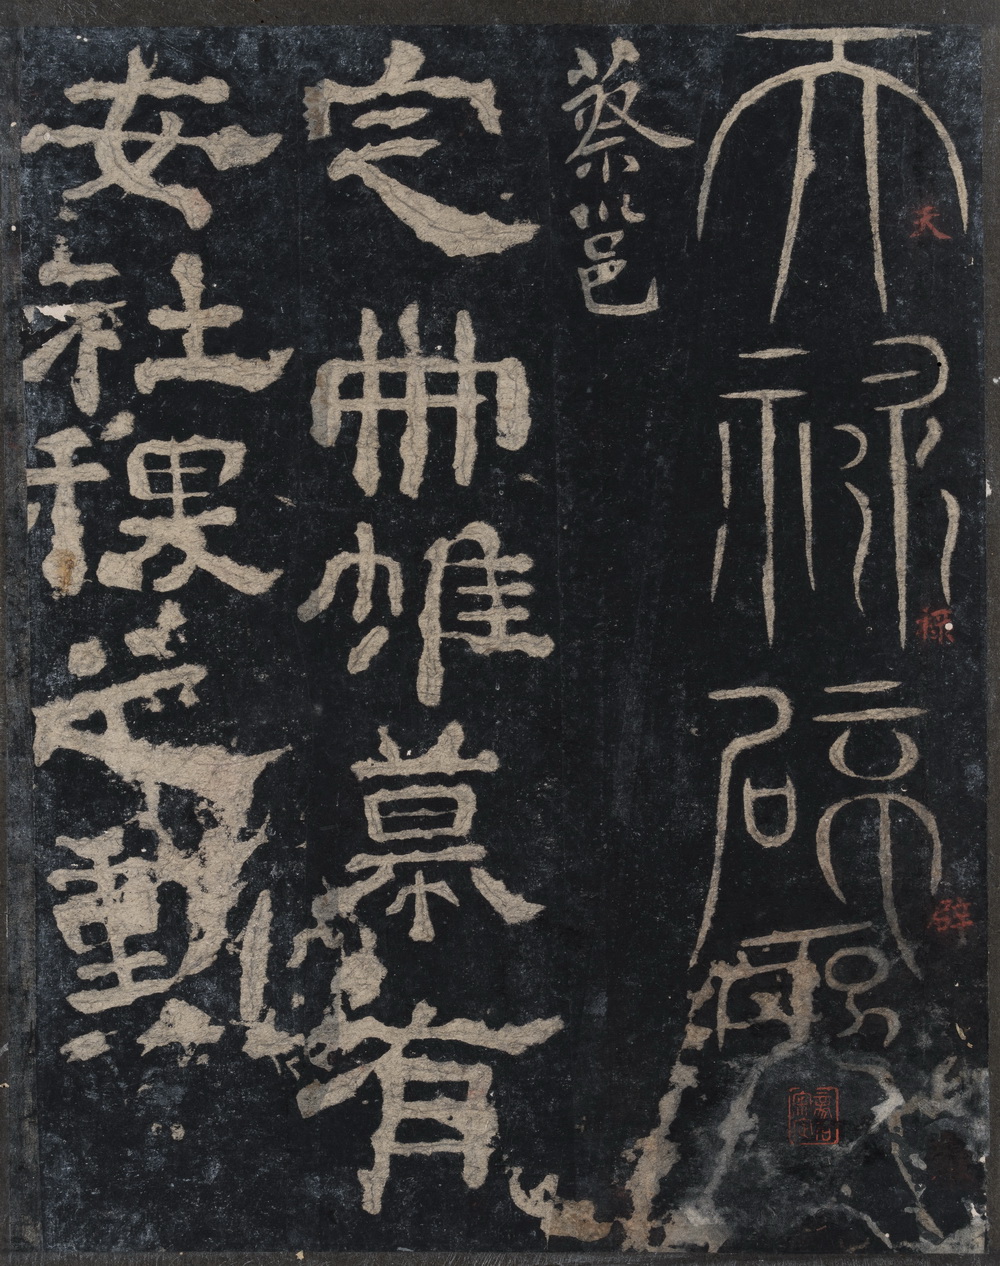 天祿辟
天
祿
辟
蔡邕
定冊帷幕有
安社稷之勳